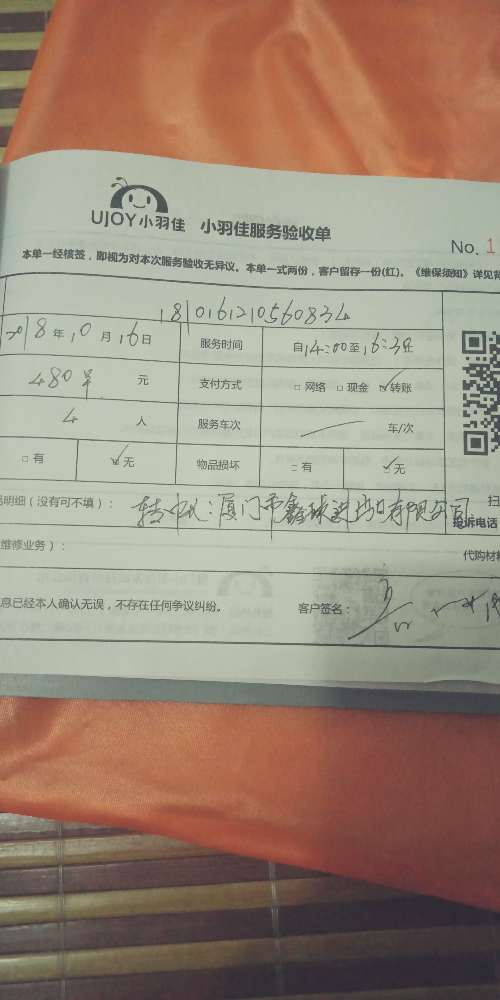 UJOY小羽佳 小羽佳服务验收单
No. 1
本单一经核签，即视为对本次服务验收无异议。本单一式两份，客户留存一份(红)。《维保须知》详见背
1810161210560834
2018年10月16日 服务时间 自14:00至16:30
480 元 支付方式 □ 网络 □ 现金 ☑ 转账
4 人 服务车次 车/次
□ 有 ☑ 无 物品损坏 □ 有 ☑ 无
明细（没有可不填）： 厦门市鑫 有限公司
扫
投诉电话
维修业务）：
代购材料
息已经本人确认无误，不存在任何争议纠纷。 客户签名：